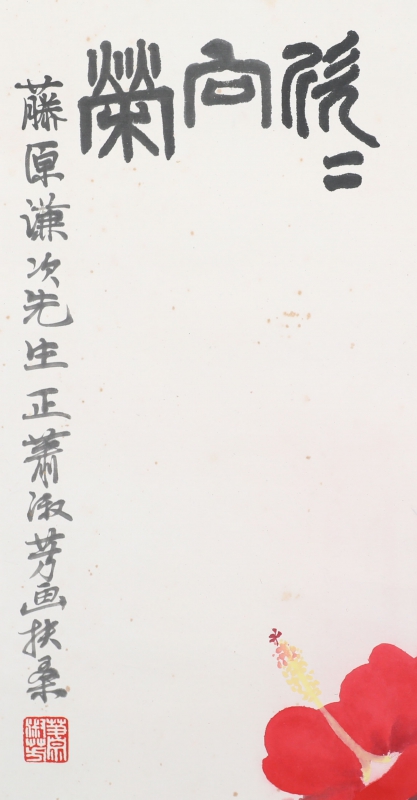 欣二向榮
藤原谦次先生正萧淑芳画扶桑